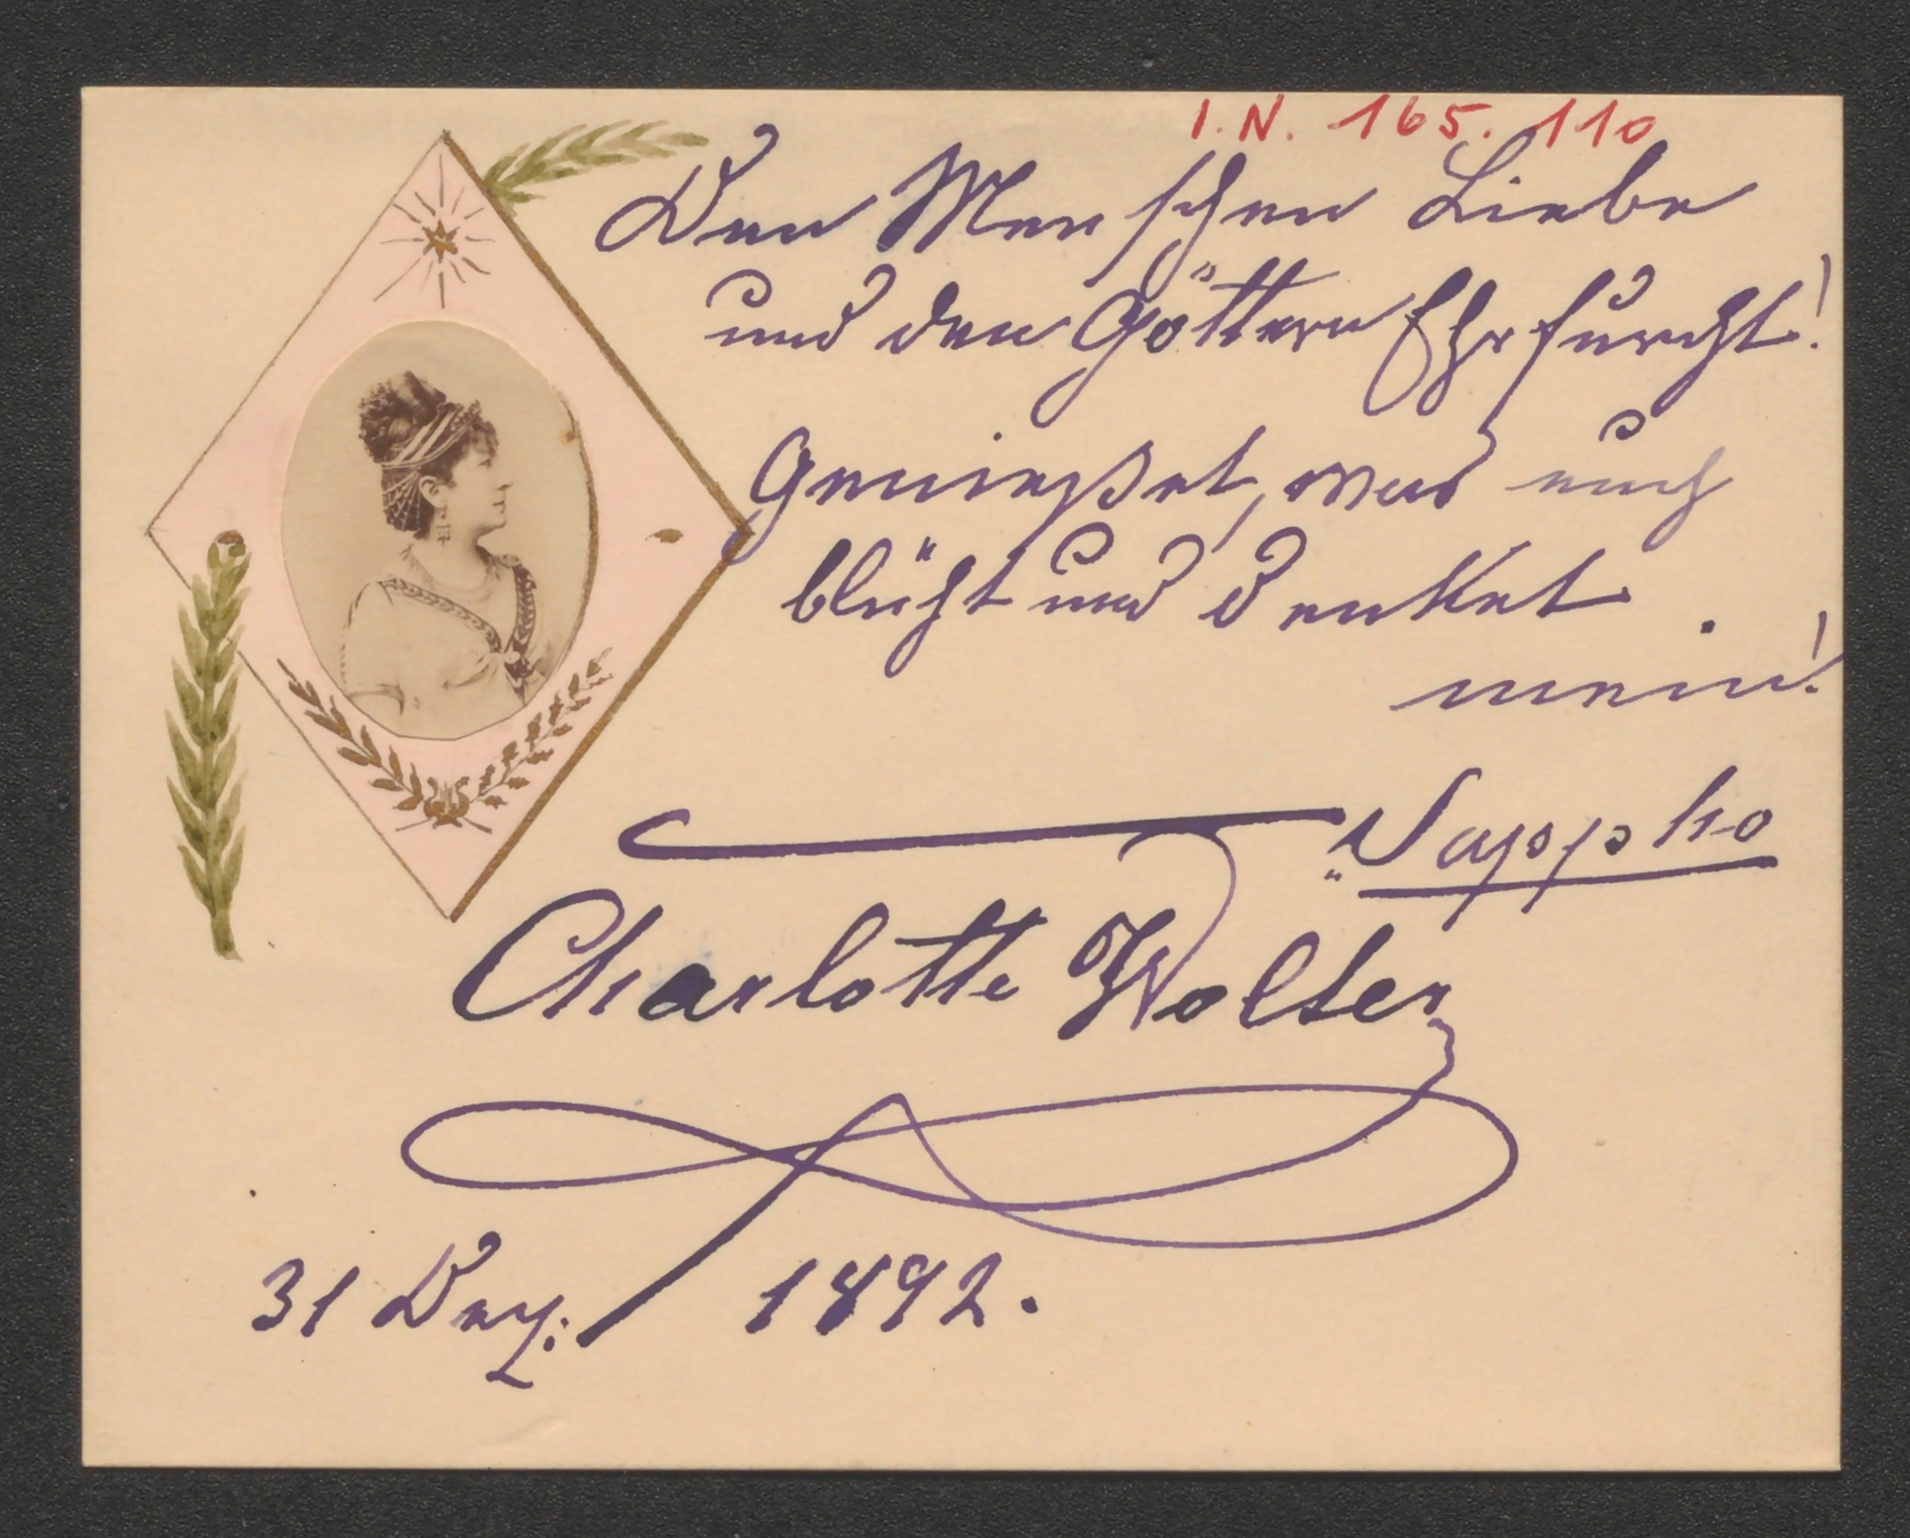 I.N. 165.110
Den Menschen Liebe
und den Göttern Ehrfurcht!
Genießet, was euch
blüht und denket
mein!
„Sappho
Charlotte Wolter
31 Dez: 1892.